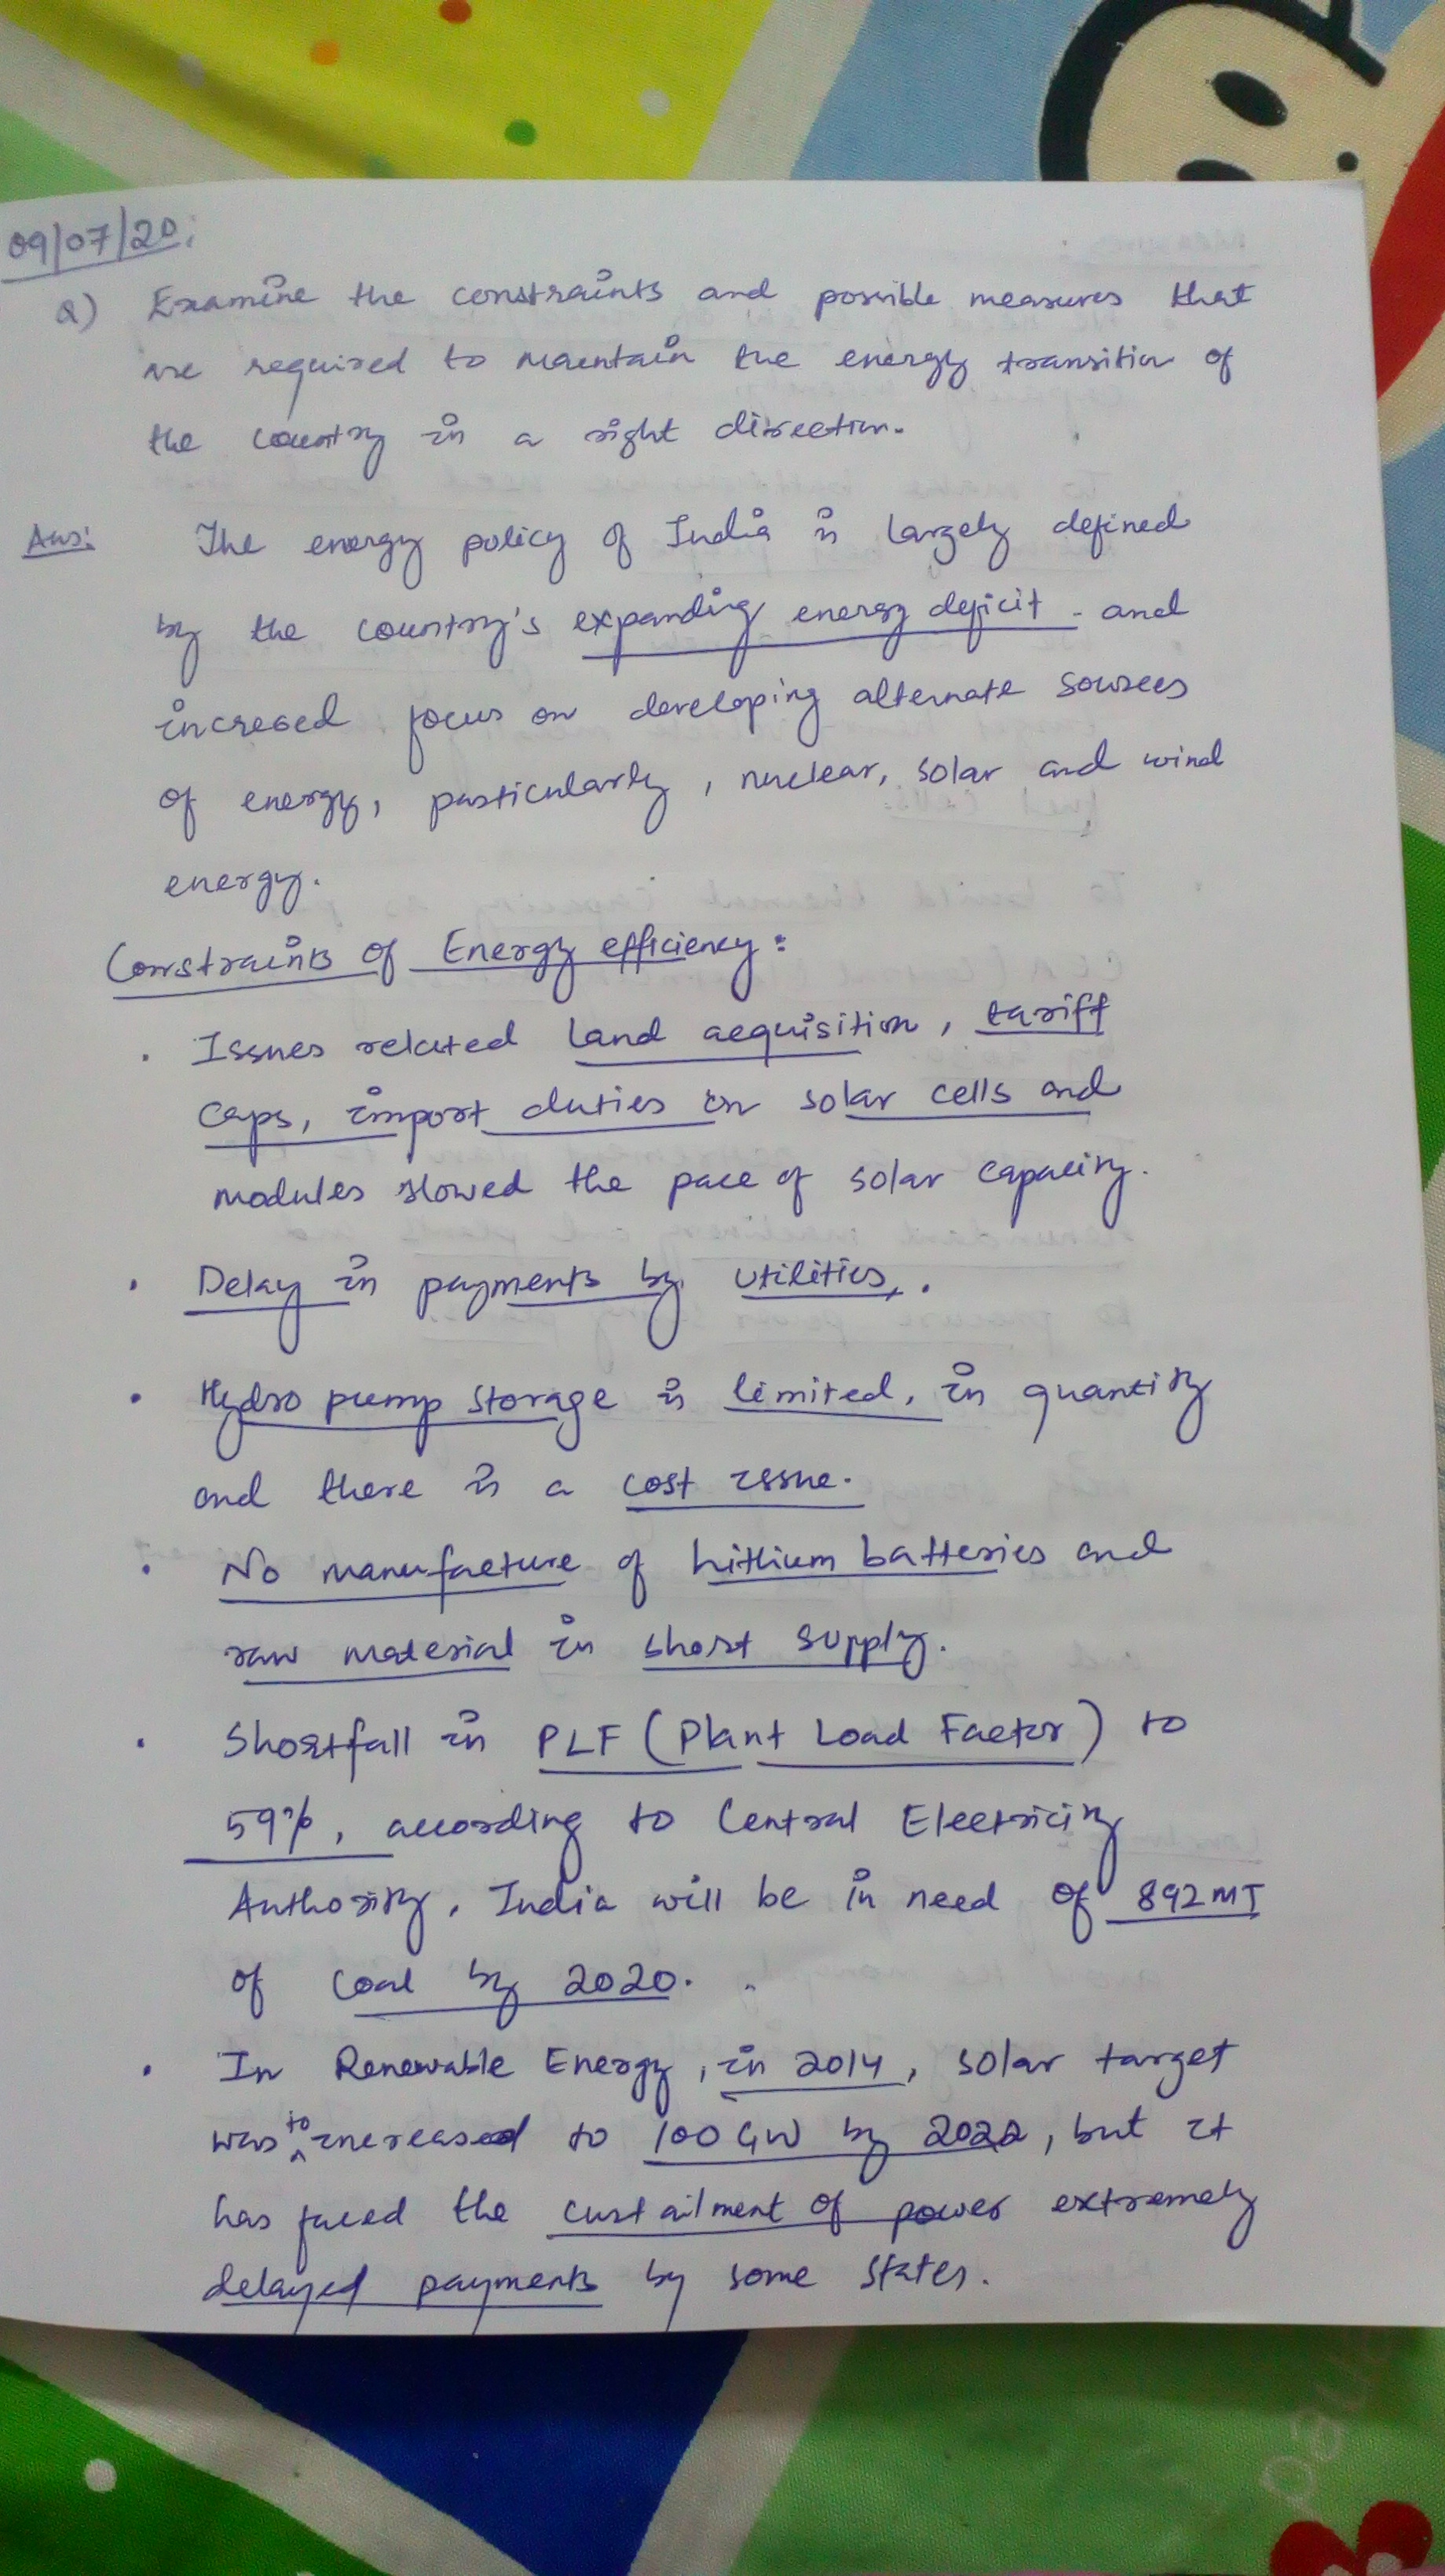 09/07/20:
Q) Examine the constraints and possible measures that
are required to maintain the energy transition of
the country in a right direction.
Ans: The energy policy of India is largely defined
by the country's expanding energy deficit and
incresed focus on developing alternate sources
of energy, particularly, nuclear, solar and wind
energy.
Constraints of Energy efficiency:
. Issues related land acquisition, tariff
caps, import duties on solar cells and
modules slowed the pace of solar capacity.
. Delay in payments by utilities.
. Hydro pump storage is limited, in quantity
and there is a cost issue.
. No manufacture of Lithium batteries and
raw material in short supply.
. Shortfall in PLF (Plant Load Factor) to
59%, according to Central Electricity
Authority, India will be in need of 892MT
of coal by 2020.
. In Renewable Energy, in 2014, solar target
was to increased to 100 GW by 2022, but it
has faced the curtailment of power extremely
delayed payments by some states.